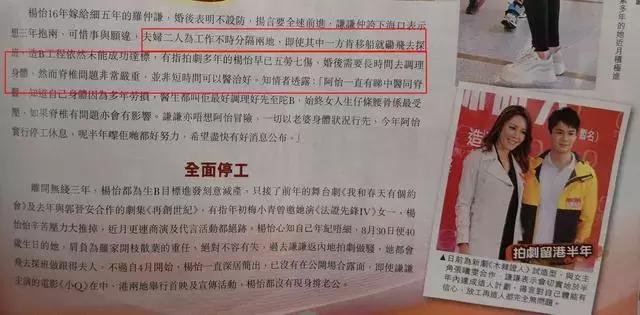 楊怡16年嫁給細五年的羅仲謙，婚後表明不設防，揚言要全速前進，謙謙仲誇下海口表示
想三年抱兩，可惜事與願違，夫婦二人為工作不時分隔兩地，即使其中一方肯移船就磡飛去探
班，造B工程依然未能成功達標，有指拍劇多年的楊怡早已五勞七傷，婚後需要長時間去調理
身體，然而脊椎問題非常嚴重，並非短時間可以醫治好。知情者透露：「阿怡一直有睇中醫同脊
醫，知道自己身體因為多年勞損，醫生都叫佢最好調理好先至陀B，始終女人生仔條腰骨係最受
壓，如果脊椎有問題一切亦會有影響。謙謙亦唔想阿怡冒險，一切以老婆身體狀況行先，今年阿怡
實行停工休息，呢半年嚟佢哋都好努力，希望盡快有好消息公布。」
全面停工
離開無綫三年，楊怡都為生B目標進發刻意減產，只接了前年的舞台劇《我和春天有個約
會》及去年與郭晉安合作的劇集《再創世紀》，有指年初梅小青曾邀她演《法證先鋒IV》女一，楊
怡怕辛苦壓力大推掉，近月更連商演及代言活動都絕跡。楊怡心知自己年紀唔細，8月30日便40
歲生日的她，肩負為羅家開枝散葉的重任，絕對不容有失，過去謙謙返內地拍劇做騷，她都會
飛去探班做跟得夫人，不過自4月開始，楊怡一直深居簡出，已沒有在公開場合露面，即使謙謙
主演的電影《小Q》在中、港兩地舉行首映及宣傳活動，楊怡都沒有現身撐老公。
多年的
她近月積極進
造
名)
拍劇留港半年
▲日前為新劇《木棘證人》試造型，與女主
角張曦雯合作，謙謙表示會切實地於半
年內達成造人計劃，揚言對自己體能有
信心，放工再造人都完全無問題。